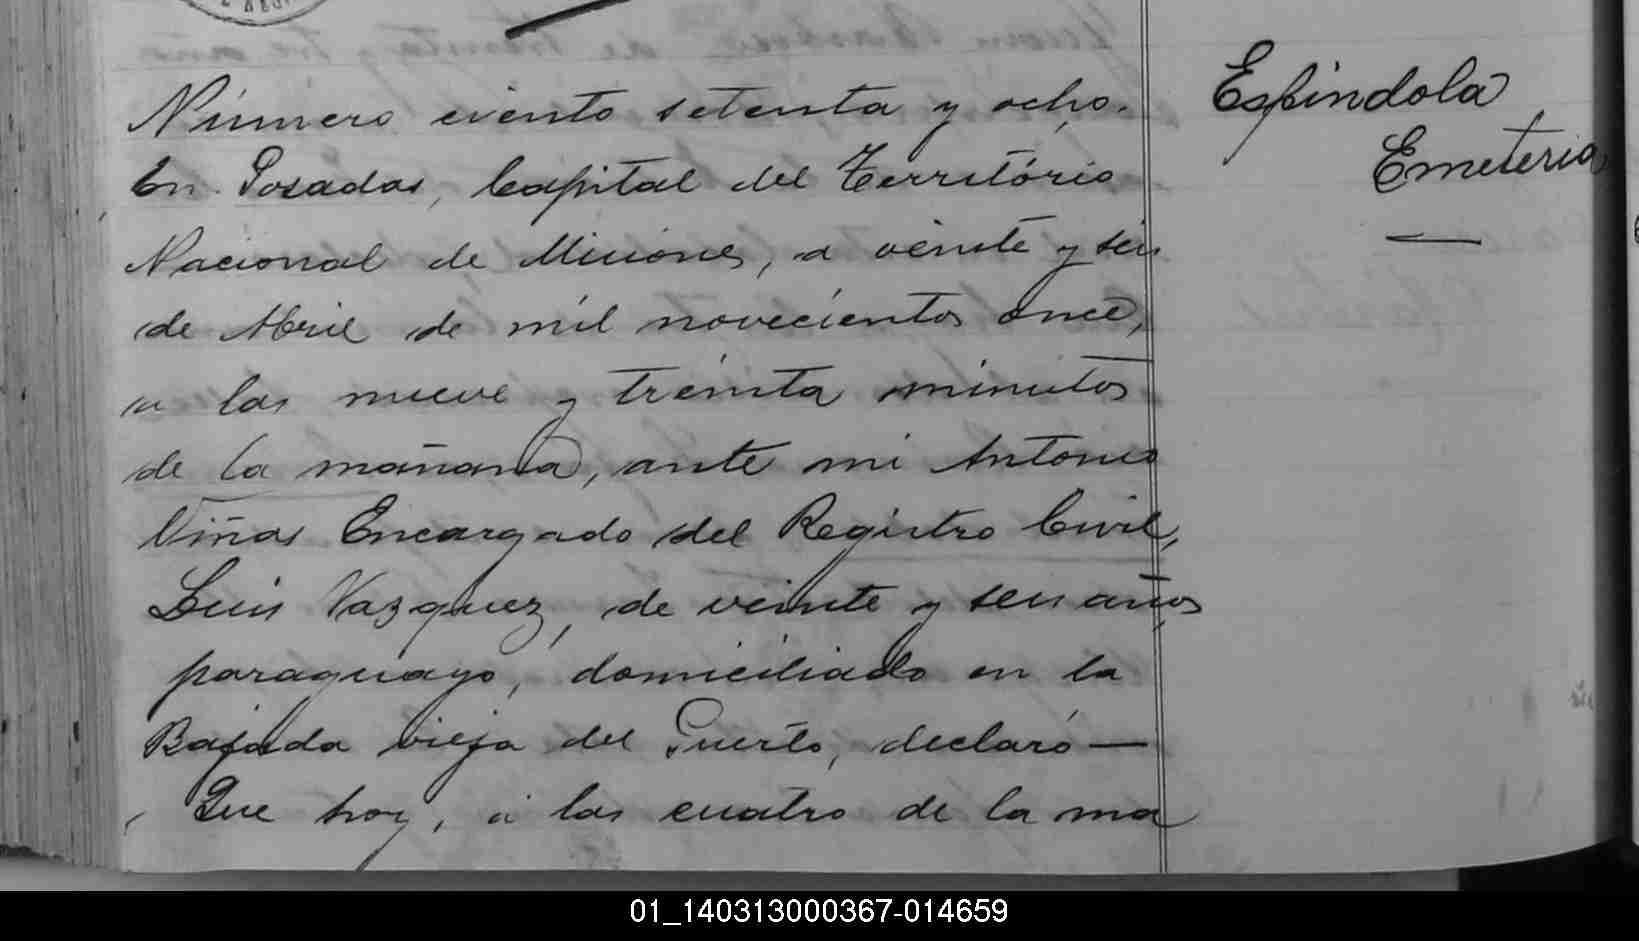 Número ciento setenta y ocho.
En Posadas, Capital del Território
Nacional de Misiones, a veinte y seis
de Abril de mil novecientos once,
a las nueve y treinta minutos
de la mañana, ante mi Antonio
Viñas Encargado del Registro Civil,
Luis Vazquez, de veinte y seis años,
paraguayo, domiciliado en la
Bajada vieja del Puerto, declaró —
Que hoy, á las cuatro de la ma
Espindola
Emeteria
01_140313000367-014659